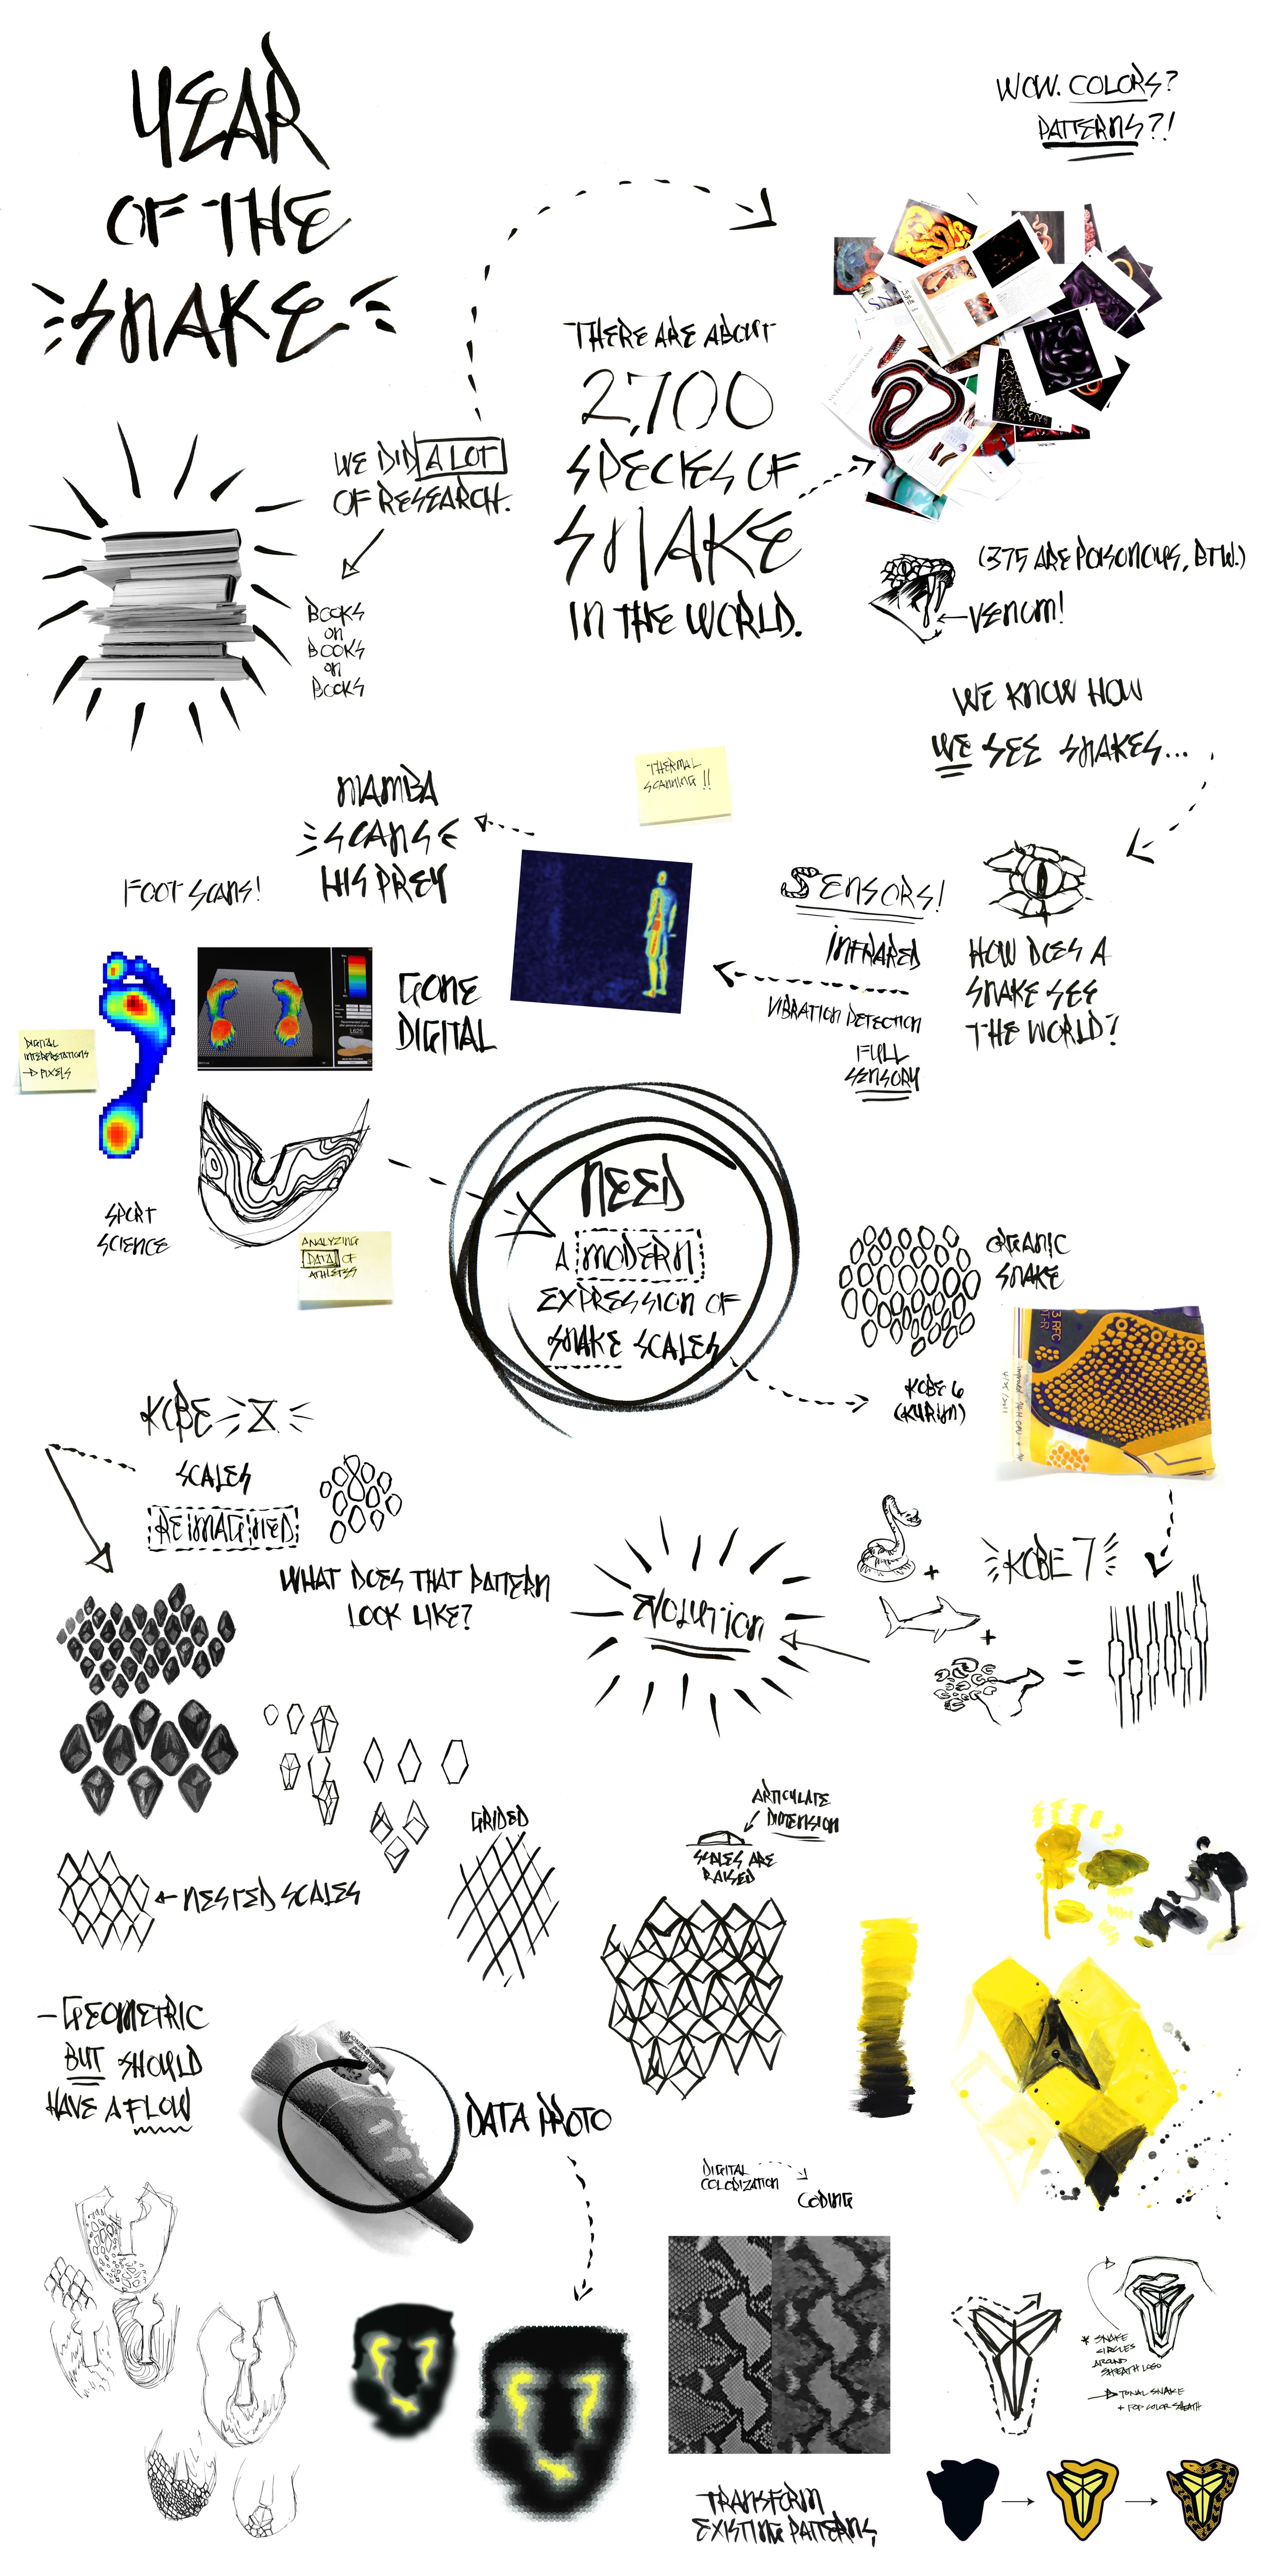 YEAR
OF THE
SNAKE
WOW. COLORS?
PATTERNS?!
WE DID A LOT
OF RESEARCH.
BOOKS
ON
BOOKS
ON
BOOKS
THERE ARE ABOUT
2,700
SPECIES OF
SNAKE
IN THE WORLD.
(375 ARE POISONOUS, BTW.)
VENOM!
WE KNOW HOW
WE SEE SNAKES...
HOW DOES A
SNAKE SEE
THE WORLD?
SENSORS!
INFRARED
VIBRATION DETECTION
FULL
SENSORY
THERMAL
SCANNING!!
MAMBA
SCANS
HIS PREY
FOOT SCANS!
GONE
DIGITAL
DIGITAL
INTERPRETATIONS
→ PIXELS
SPORT
SCIENCE
ANALYZING
DATA OF
ATHLETES
NEED
A MODERN
EXPRESSION OF
SNAKE SCALES
ORGANIC
SNAKE
KOBE 6
(KURIM)
KOBE 7
+
+
=
EVOLUTION
KOBE X
SCALES
REIMAGINED
WHAT DOES THAT PATTERN
LOOK LIKE?
GRIDED
NESTED SCALES
ARTICULATE
DIMENSION
SCALES ARE
RAISED
- GEOMETRIC
BUT SHOULD
HAVE A FLOW
DATA PROTO
DIGITAL
COLORIZATION
CODING
TRANSFORM
EXISTING PATTERNS
* SNAKE
CIRCLES
AROUND
SHEATH LOGO
→ TONAL SNAKE
+ POP COLOR SHEATH